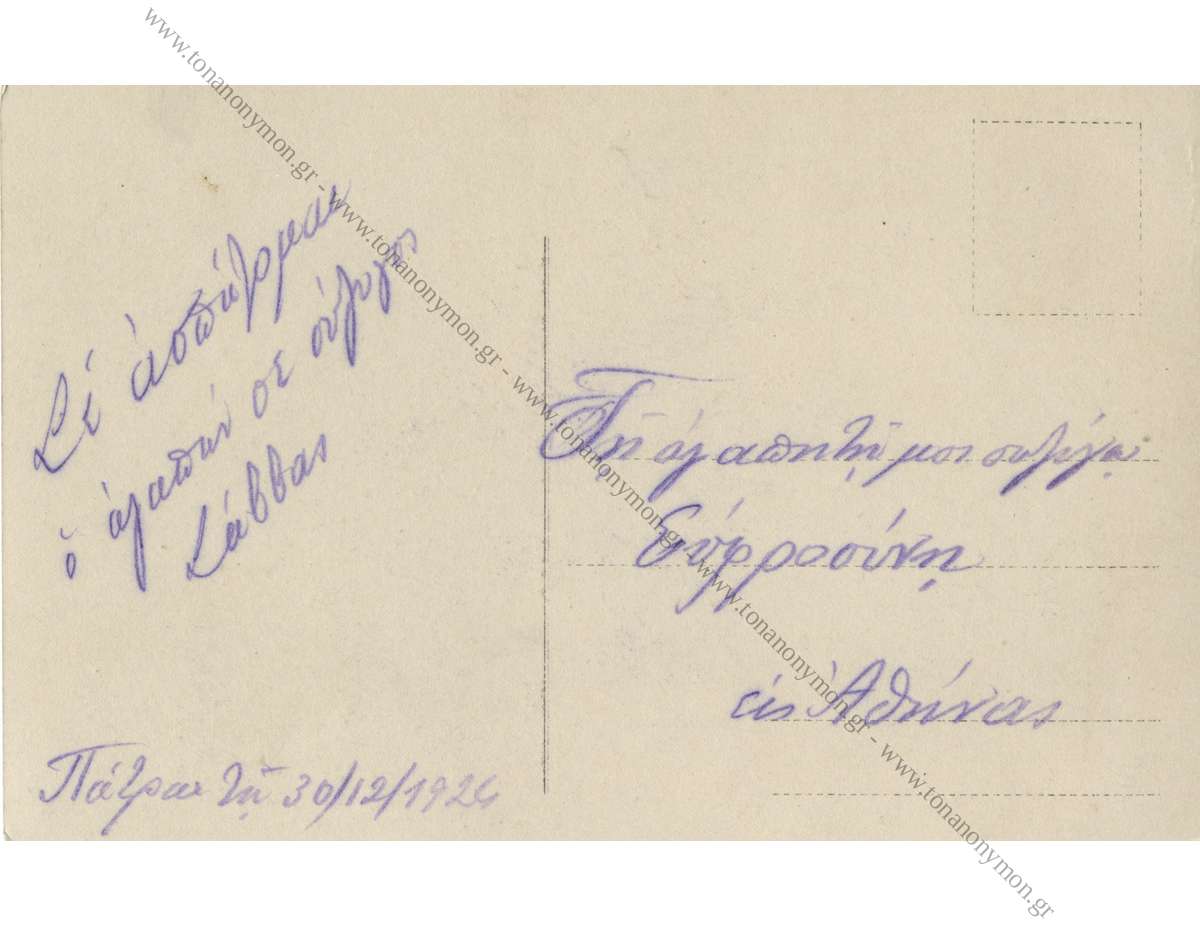 Σέ ἀσπάζομαι
ὁ ἀγαπών σε σύζυγος
Σάββας
Πάτραι τῇ 30/12/192
Τῇ ἀγαπητῇ μοι συζύγῳ
Εὐφροσύνῃ
εἰς Ἀθήνας
www.tonanonymon.gr - www.tonanonymon.gr - www.tonanonymon.gr - www.tonanonymon.gr - www.tonanonymon.gr